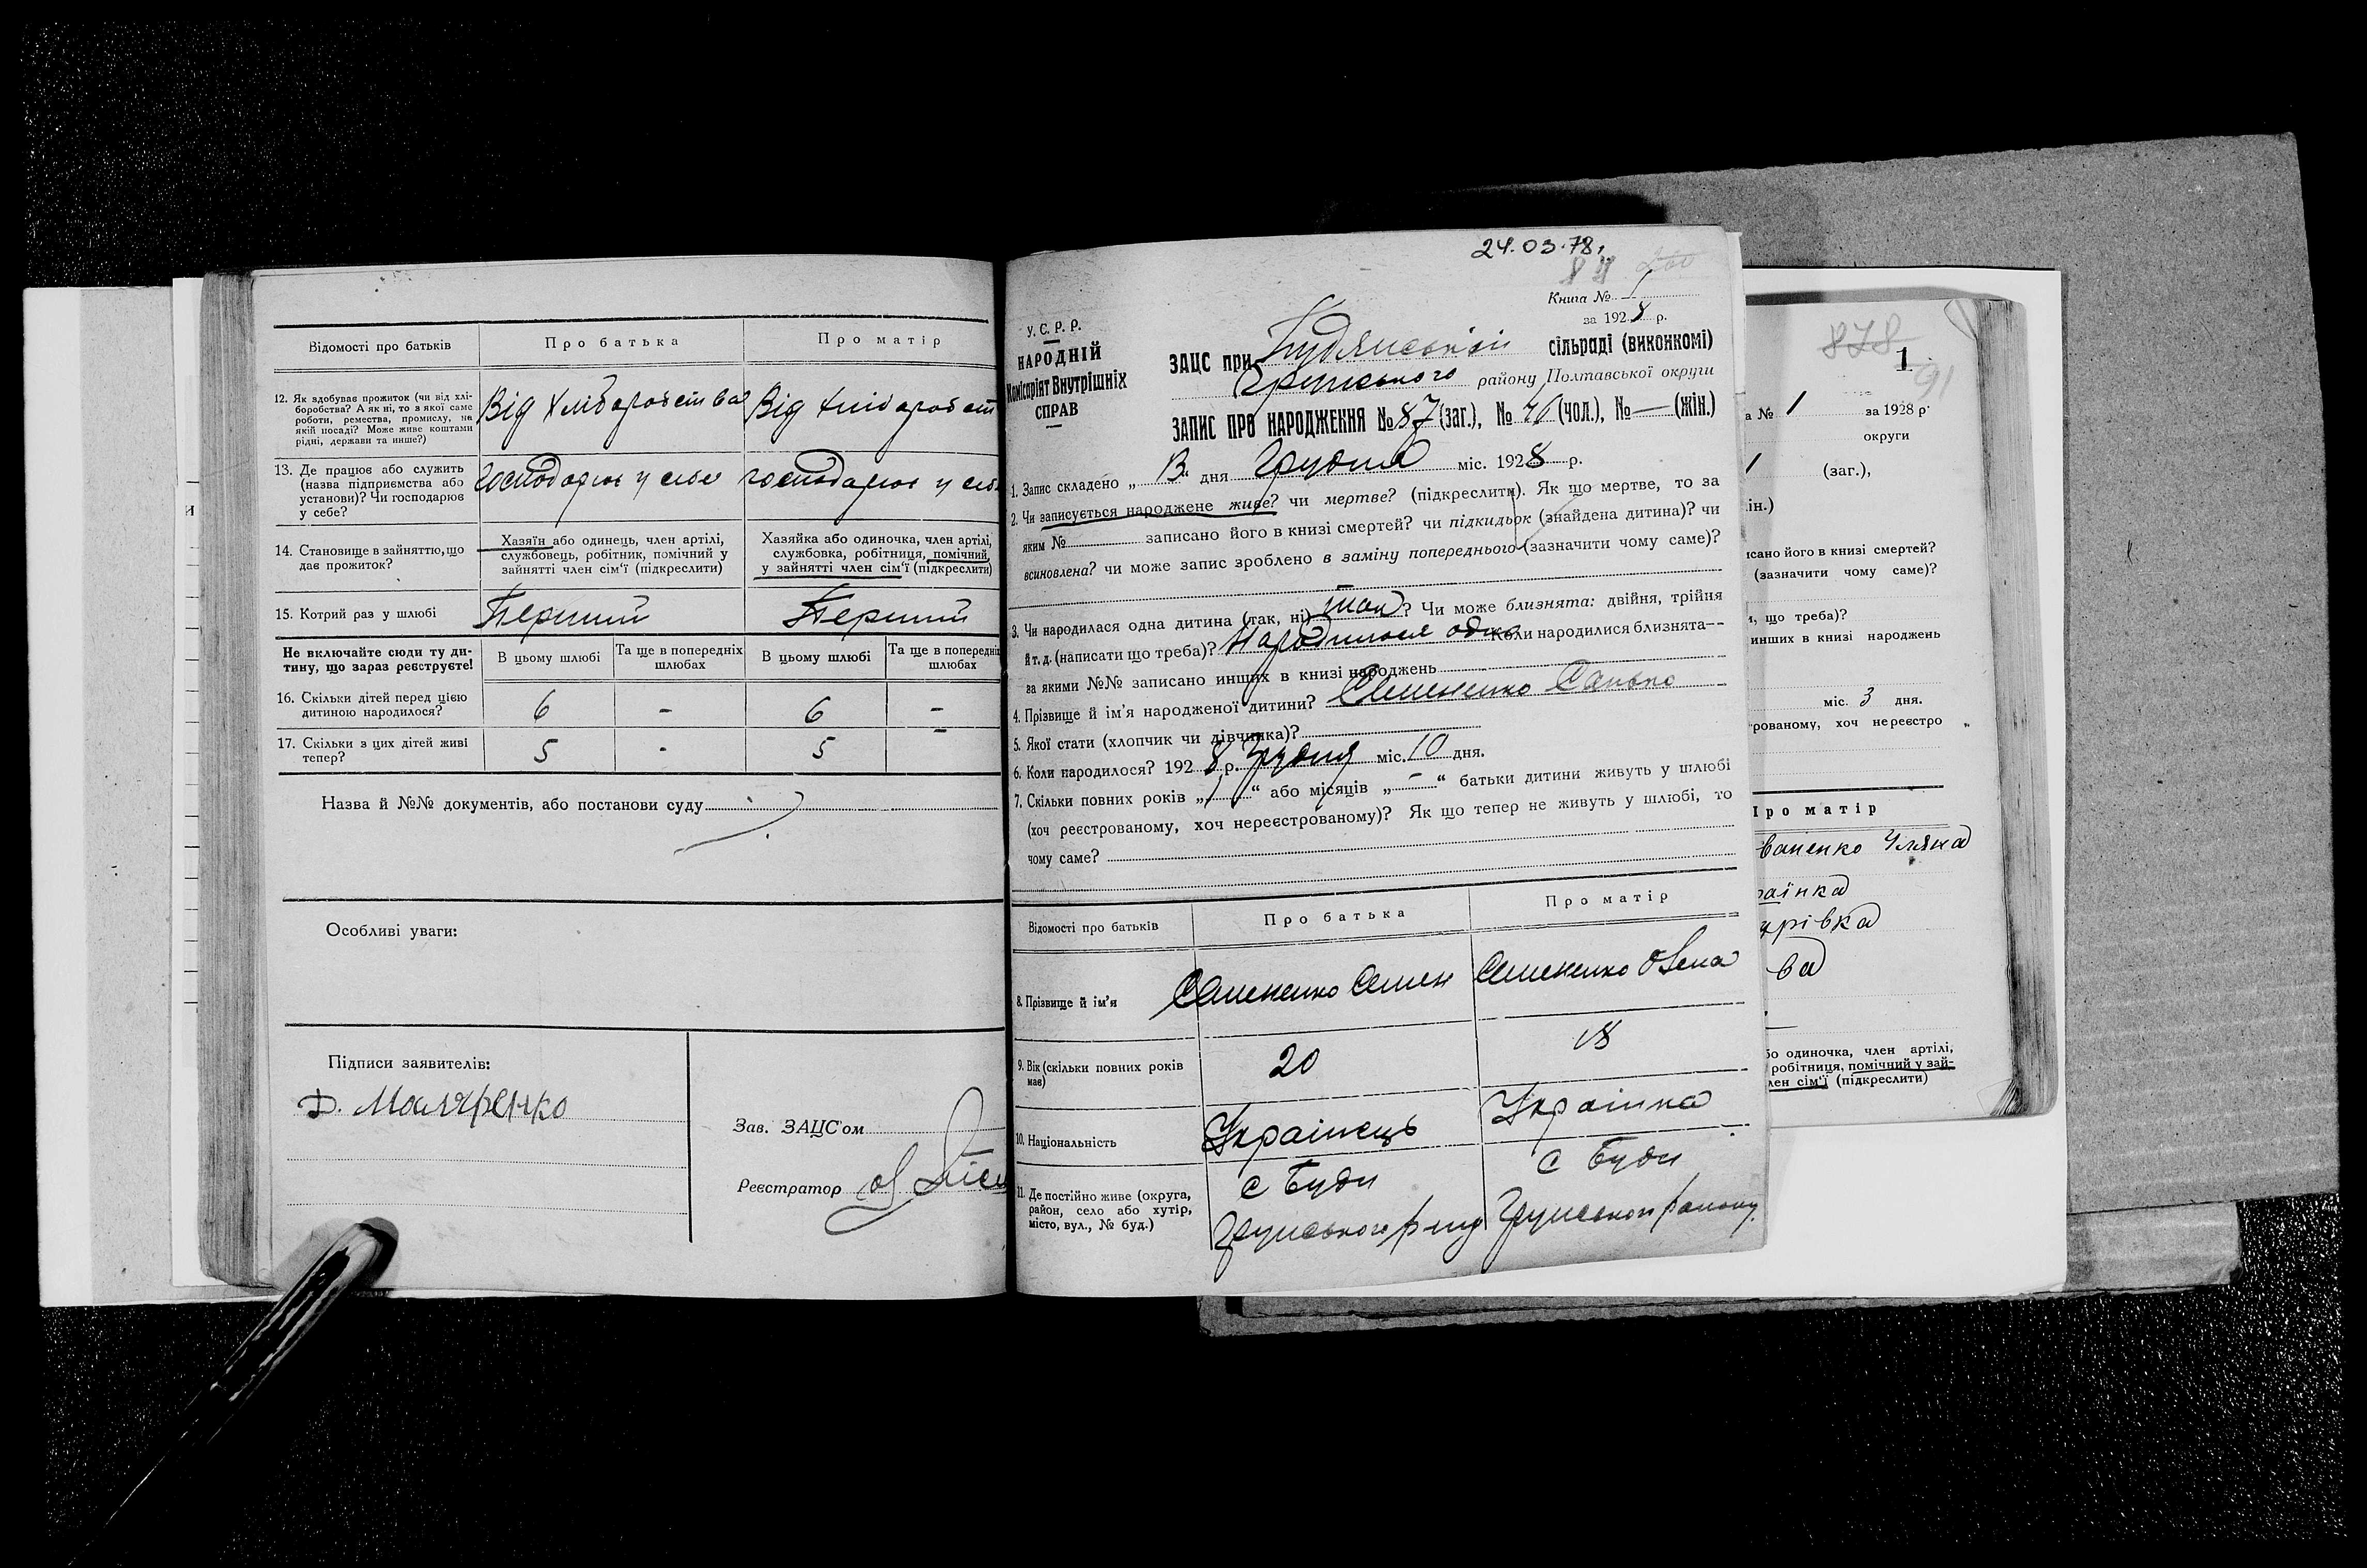 Відомості про батьків
Про батька
Про матір
12. Як здобуває прожиток (чи від хлі-
боробства? А як ні, то з якої саме
роботи, ремества, промислу, на
якій посаді? Може живе коштами
рідні, держави та инше?)
Від хліборобства
Від хліборобст
13. Де працює або служить
(назва підприємства або
установи)? Чи господарює
у себе?
господарює у себе
господарює у себе
14. Становище в зайняттю, що
дає прожиток?
Хазяїн або одинець, член артілі,
службовець, робітник, помічний у
зайнятті член сім'ї (підкреслити)
Хазяйка або одиночка, член артілі,
службовка, робітниця, помічний
у зайнятті член сім'ї (підкреслити)
15. Котрий раз у шлюбі
Перший
Перший
Не включайте сюди ту ди-
тину, що зараз реєструєте!
В цьому шлюбі
Та ще в попередніх
шлюбах
В цьому шлюбі
Та ще в попередніх
шлюбах
16. Скільки дітей перед цією
дитиною народилося?
6 - 6 -
17. Скільки з цих дітей живі
тепер?
5 - 5 -
Назва й №№ документів, або постанови суду
Особливі уваги:
Підписи заявителів:
Д. Моляренко
Зав. ЗАЦС'ом
Реєстратор
24.03.78.
Книга № 1
за 1928 р.
У. С. Р. Р.
НАРОДНІЙ
Комісаріят Внутрішніх
СПРАВ
ЗАЦС при Будянській сільраді (виконкомі)
Грунського району Полтавської округи
ЗАПИС ПРО НАРОДЖЕННЯ № 87 (заг.), № 46 (чол.), № — (жін.)
1. Запис складено „13“ дня Грудня міс. 1928 р.
2. Чи записується народжене живе? чи мертве? (підкреслити). Як що мертве, то за
яким № записано його в книзі смертей? чи підкидьок (знайдена дитина)? чи
всиновлена? чи може запис зроблено в заміну попереднього (зазначити чому саме)?
3. Чи народилася одна дитина (так, ні) так? Чи може близнята: двійня, трійня
й т. д. (написати що треба)? Народилося одно Коли народилися близнята—
за якими №№ записано инших в книзі народжень
4. Прізвище й ім'я народженої дитини? Семененко Санько
5. Якої стати (хлопчик чи дівчинка)?
6. Коли народилося? 1928 р. Грудня міс. 10 дня.
7. Скільки повних років „1“ або місяців „-“ батьки дитини живуть у шлюбі
(хоч реєстрованому, хоч нереєстрованому)? Як що тепер не живуть у шлюбі, то
чому саме?
Відомості про батьків
Про батька
Про матір
8. Прізвище й ім'я
Семененко Семен
Семененко Олена
9. Вік (скільки повних років
має)
20
18
10. Національність
Українець
Українка
11. Де постійно живе (округа,
район, село або хутір,
місто, вул., № буд.)
с Буди
Грунського р-ну
с Буди
Грунського району
878
1
91
а № 1 за 1928 р.
округи
1 (заг.),
ін.)
исано його в книзі смертей?
(зазначити чому саме)?
, що треба)?
инших в книзі народжень
міс. 3 дня.
трованому, хоч нереєстро
Про матір
ваненко Уляна
раїнка
бо одиночка, член артілі,
робітниця, помічний у зай-
лен сім'ї (підкреслити)